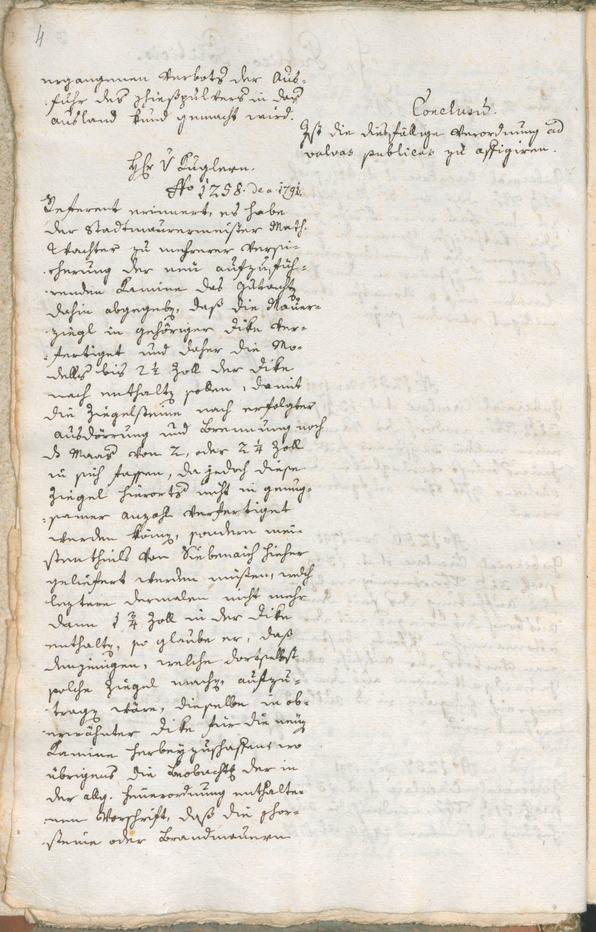 4
ergangenen Verbots der Aus-
fuhr des Schießpulvers in das
Ausland kund gemacht wird.
Conclusum.
Ist die diesfällige Verordnung ad
valvas publicas zu affigiren.
Hr. V Kuglern.
No 1258. de a 1791.
Referent erinnert, es habe
der Stadtmaurermeister Math.
Wachter zu mehrerer Versi-
cherung der neu aufzufüh-
renden Kamine das Gutacht
dahin abgegeb, daß die Mauer-
ziegl in gehöriger Dike ver-
fertiget und daher die Mo-
dells bis 2 1/2 Zoll der Dike
nach enthalt sollen, damit
die Ziegelsteine nach erfolgter
Ausdörrung und Brennung noch
d Maas von 2, oder 2 1/4 Zoll
in sich fassen, da jedoch diese
Ziegel hierorts nicht in genug-
samer Anzahl verfertiget
werden könn, sondern mei-
stentheils von Siebenaich hieher
geliefert werden müßen, welch
leztere dermalen nicht mehr
dann 1 3/4 Zoll in der Dike
enthalt, so glaube er, daß
denjenigen, welche dortselbst
solche Ziegel mach, aufzu-
trag wäre, dieselbe in ob-
erwähnter Dike für die neue
Kamine herbeyzuschaffen, wo
übrigens die Beobacht der in
der allg. Feuerordnung enthalte-
nen Vorschrift, daß die Schor-
steine oder Brandmauern